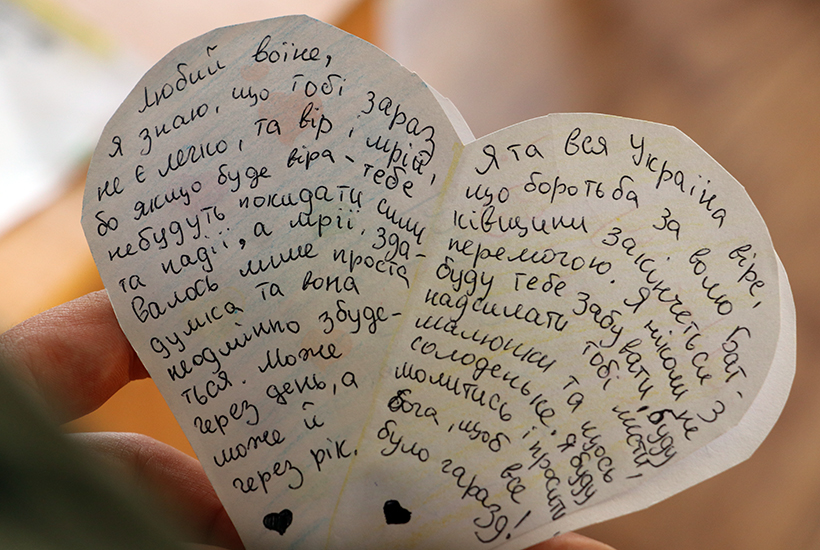 Любий воїне,
я знаю, що тобі зараз
не є легко, та вір і мрій,
бо якщо буде віра - тебе
небудуть покидати сили
та надії, а мрії, зда-
валось лише проста
думка та вона
неодмінно збуде-
ться. Може
через день, а
може й
через рік.
Я та вся Україна віре,
що боротьба за волю Бат-
ківщини закінчеться з
перемогою. Я ніколи не
буду тебе забувати, буду
надсилати тобі листи,
малюнки та щось
солоденьке. Я буду
молитись і просити
бога, щоб все
було гаразд!